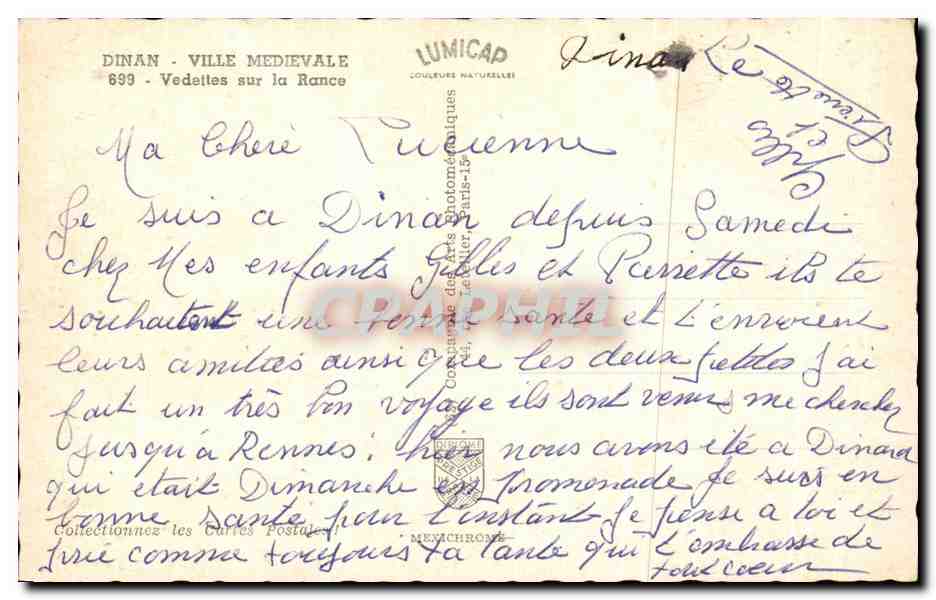 DINAN - VILLE MEDIEVALE
699 - Vedettes sur la Rance
LUMICAP
COULEURS NATURELLES
Dinan Le
Pierrette
et
Gilles
Ma Chère Lucienne
Je suis a Dinan depuis Samedi
chez Mes enfants Gilles et Pierrette ils te
souhaitent une bonne santé et t'envoient
leurs amitiés ainsi que les deux J'ai
fait un très bon voyage ils sont venus me chercher
Jusqu'a Rennes; hier nous avons été a Dinard
qui était Dimanche en promenade Je suis en
bonne santé pour l'instant Je pense a toi et
prie comme toujours ta tante qui t'embrasse de
tout coeur
Compagnie des Arts Photomécaniques
44, Letellier, Paris-15e
CPAPHIL
DIPLOME
PRESTIGE
Collectionnez les Cartes Postales
MEXICHROME